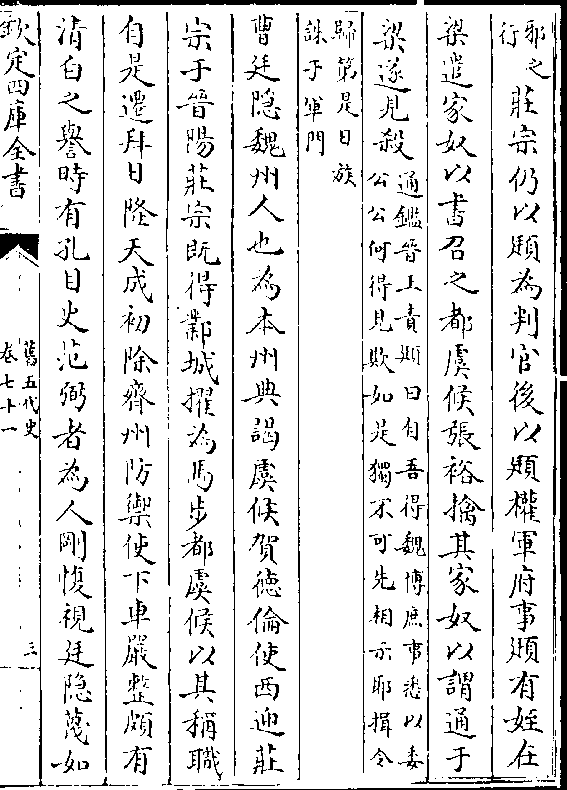 邪之
行
莊宗仍以頲為判官後以頲權軍府事頲有姪在
梁遣家奴以書召之都虞候張裕擒其家奴以謂通于
梁遂見殺
通鑑晉王責頲曰自吾得魏博庶事悉以委
公公何得見欺如是獨不可先相示耶揖令
歸第是日族
誅于軍門
曹廷隐魏州人也為本州典謁虞候賀德倫使西迎莊
宗于晉陽莊宗既得鄴城擢為馬步都虞候以其稱職
自是遷拜日隆天成初除齊州防禦使下車嚴整頗有
清白之譽時有孔目吏范弼者為人剛愎視廷隐蔑如
欽定四庫全書
舊五代史
卷七十一
三